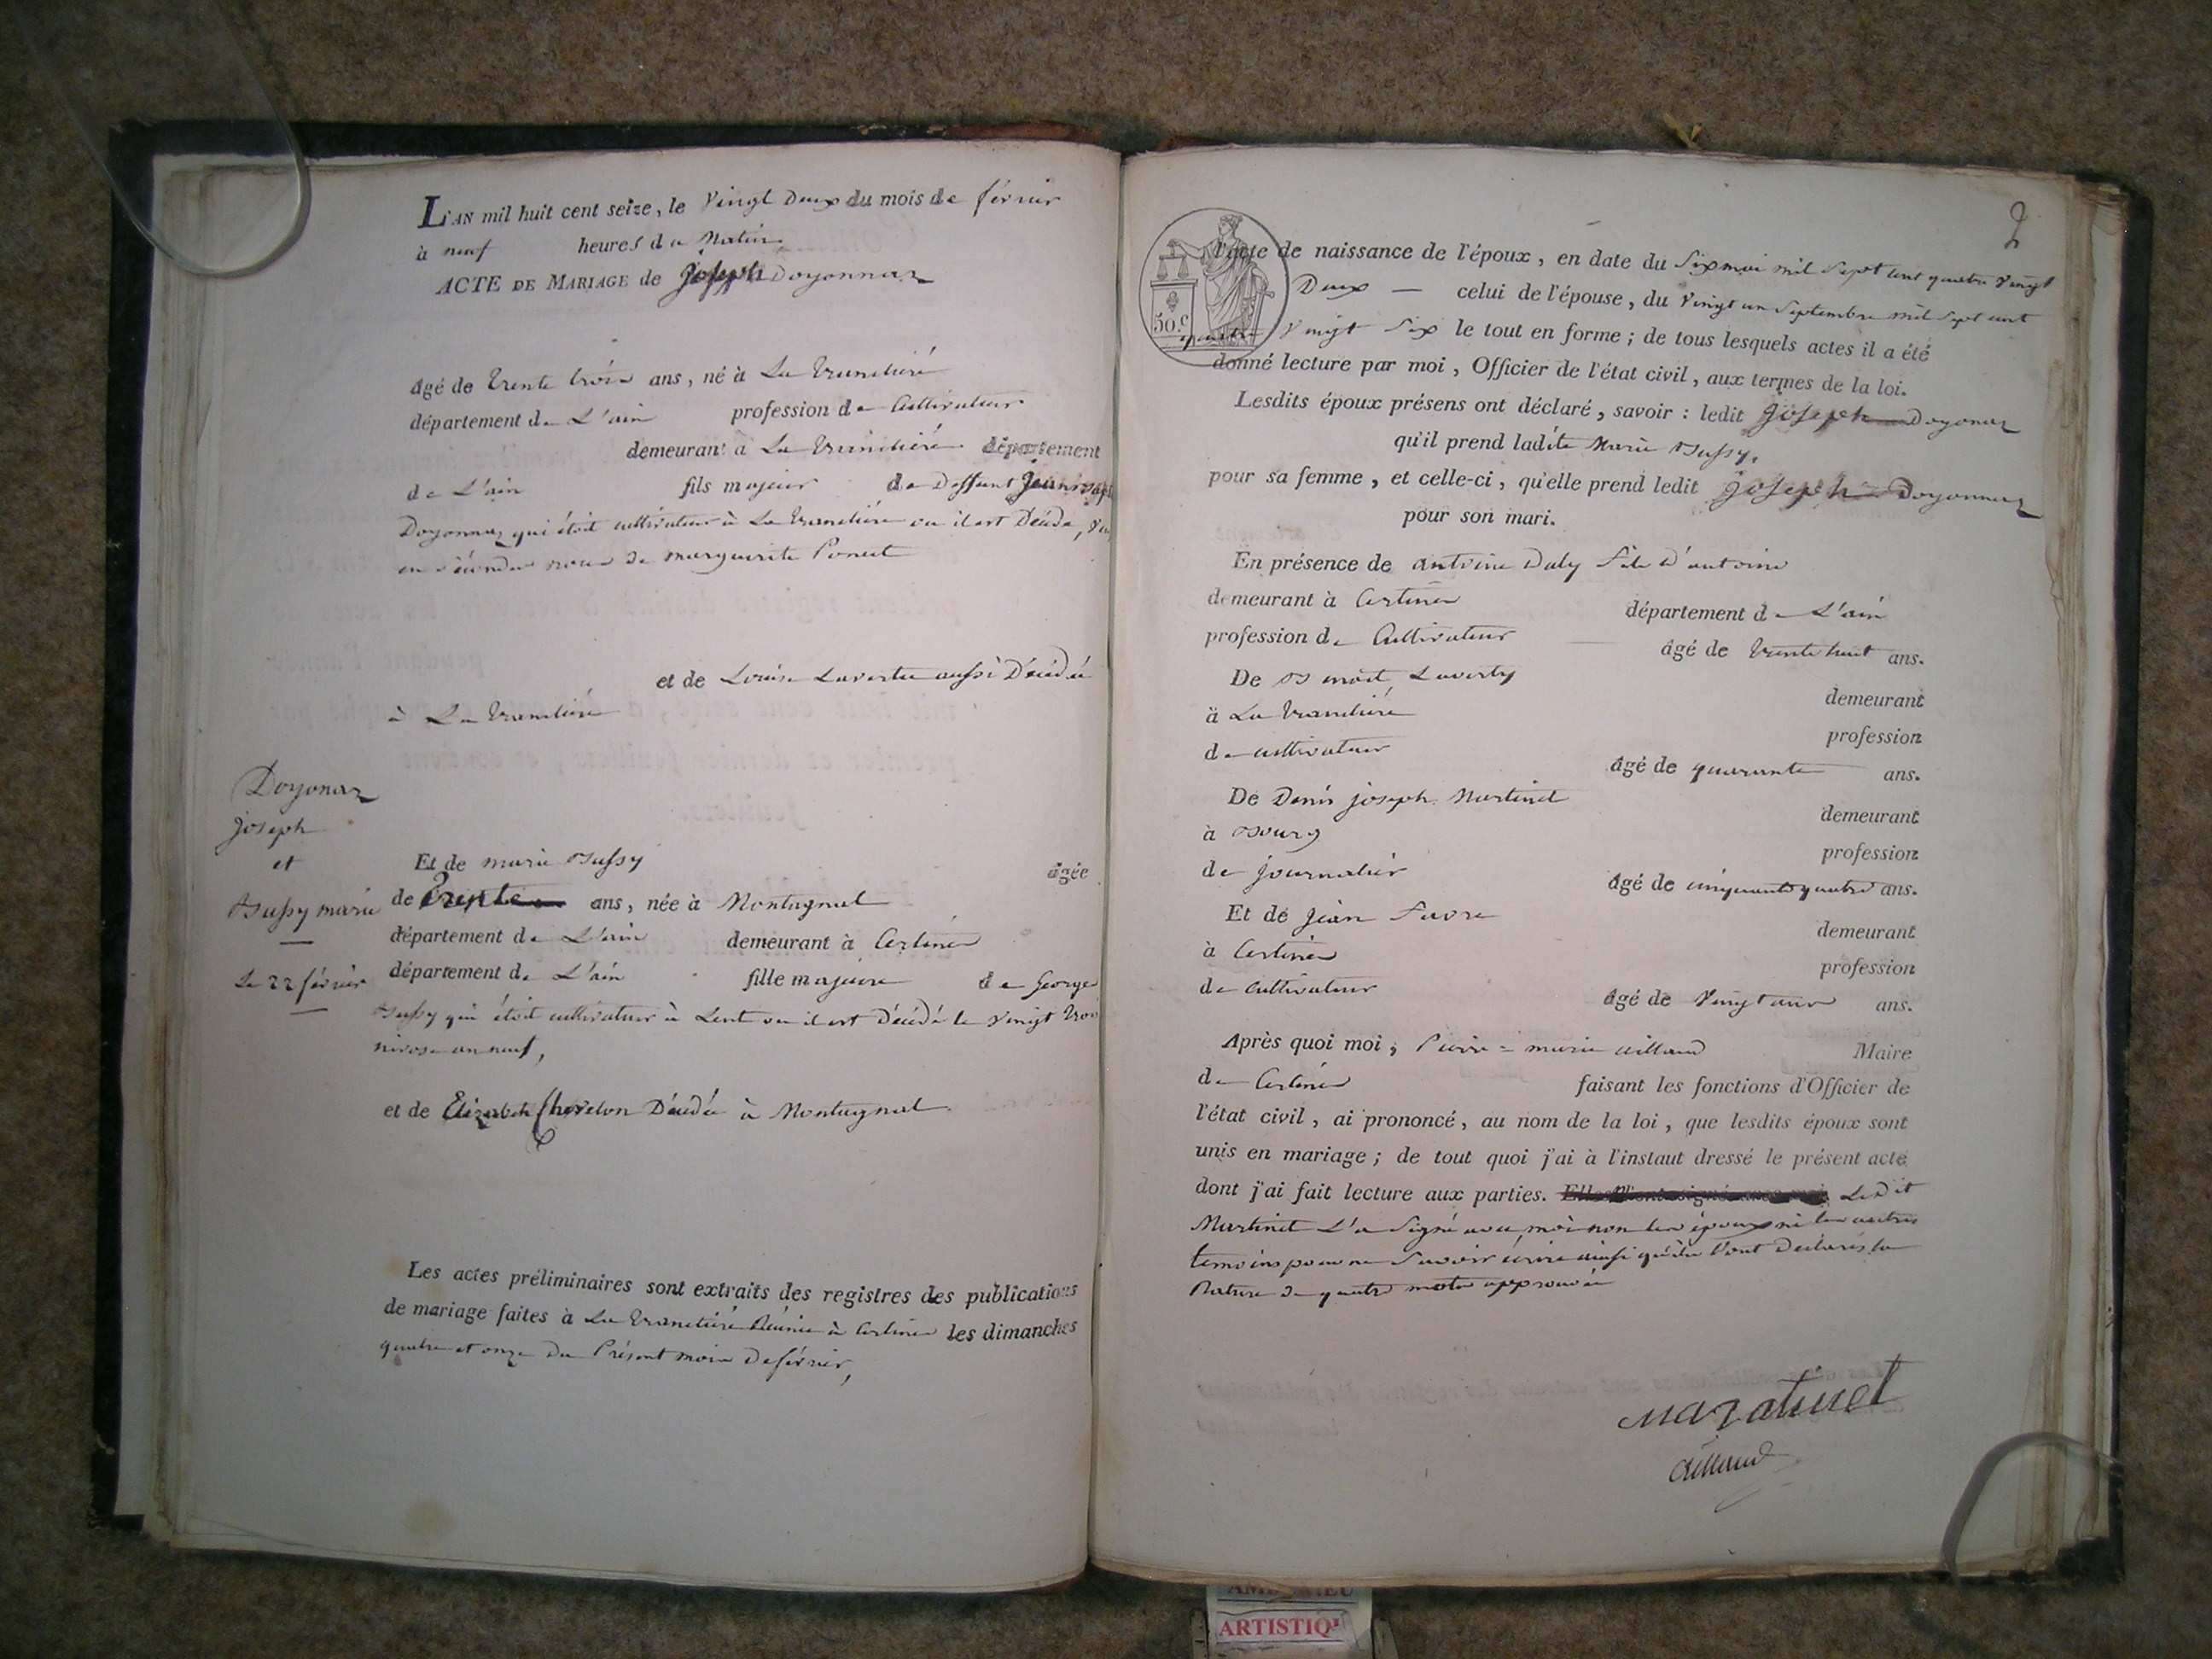 L'AN mil huit cent seize, le vingt deux du mois de février
à neuf heures du matin
ACTE DE MARIAGE de joseph Doyonnaz
âgé de trente trois ans, né à La tranclière
département de L'ain profession de Cultivateur
demeurant à La tranclière département
de L'ain fils majeur de Deffunt jean
Doyonnaz qui étoit cultivateur à La tranclière ou il est Décédé,
en secondes noces de marguerite Poncet
et de Louise Laverty aussi Décédée
à La tranclière
Doyonaz
joseph
et
Bussy marie
Le 22 février
Et de marie Bussy âgée
de trente ans, née à Montagnat
département de L'ain demeurant à Certines
département de L'ain fille majeure de George
Bussy qui étoit cultivateur à Lent ou il est Décédé le vingt trois
nivose an neuf,
et de Elizabeth Chevelon Décédée à Montagnat
Les actes préliminaires sont extraits des registres des publications
de mariage faites à La tranclière Réunie à Certines les dimanches
quatre et onze du Présent mois De février,
2
l'acte de naissance de l'époux, en date du six mai mil sept cent quatre vingt
Deux — celui de l'épouse, du vingt un septembre mil sept cent
50.c
quatre vingt six le tout en forme ; de tous lesquels actes il a été
donné lecture par moi, Officier de l'état civil, aux termes de la loi.
Lesdits époux présens ont déclaré, savoir : ledit joseph Doyonaz
qu'il prend ladite Marie Bussy,
pour sa femme, et celle-ci, qu'elle prend ledit joseph Doyonnaz
pour son mari.
En présence de antoine Daly fils D'antoine
demeurant à Certines département de L'ain
profession de Cultivateur âgé de trente huit ans.
De Benoit Laverty demeurant
à La tranclière profession
de cultivateur âgé de quarante ans.
De Denis joseph Martinet demeurant
à Bourg profession
de journalier âgé de cinquante quatre ans.
Et de jean Favre demeurant
à Certines profession
de cultivateur âgé de vingt ans.
Après quoi moi, Pierre = marie aillaud Maire
de Certines faisant les fonctions d'Officier de
l'état civil, ai prononcé, au nom de la loi, que lesdits époux sont
unis en mariage ; de tout quoi j'ai à l'instaut dressé le présent acte
dont j'ai fait lecture aux parties. Ledit
Martinet L'a signé avec moi non les époux ni les autres
temoins pour ne savoir écrire ainsi qu'ils l'ont Declarés la
Rature de quatre mots approuvée
maratinet
aillaud
ARTISTIQ